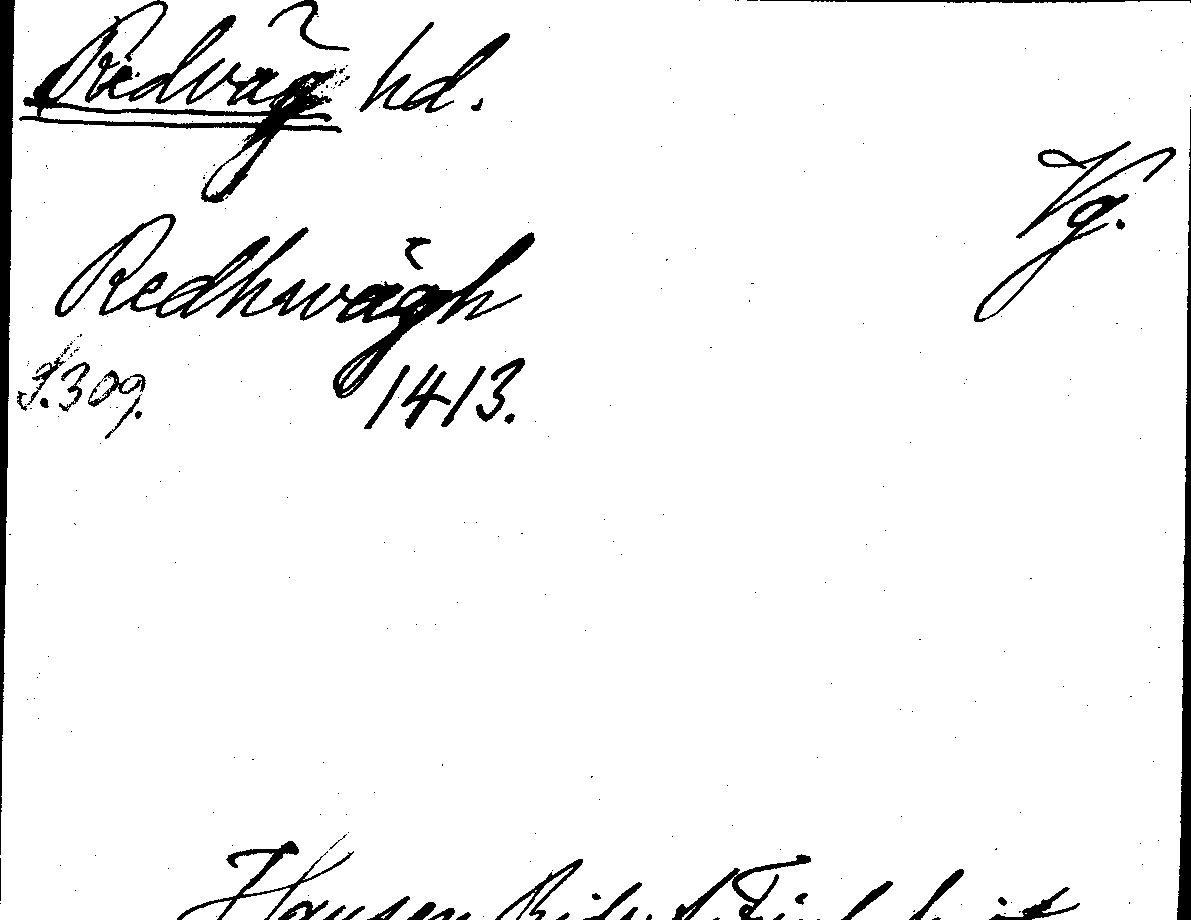 Redväg hd.
Vg.
Redhwägh
S. 309. 1413.
Hausen